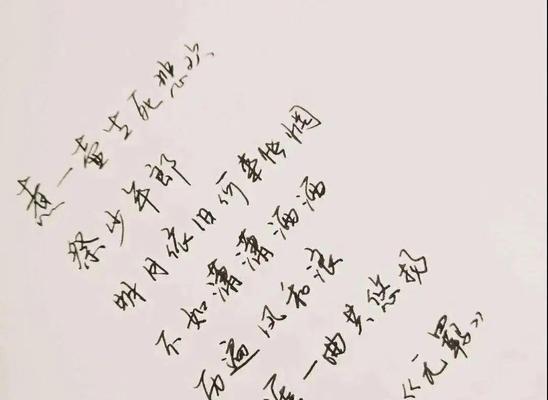 煮一壶生死悲欢
祭少年郎
明月依旧何来怅惘
不如潇潇洒洒
历遍风和浪
涯一曲共悠扬
《元羁》